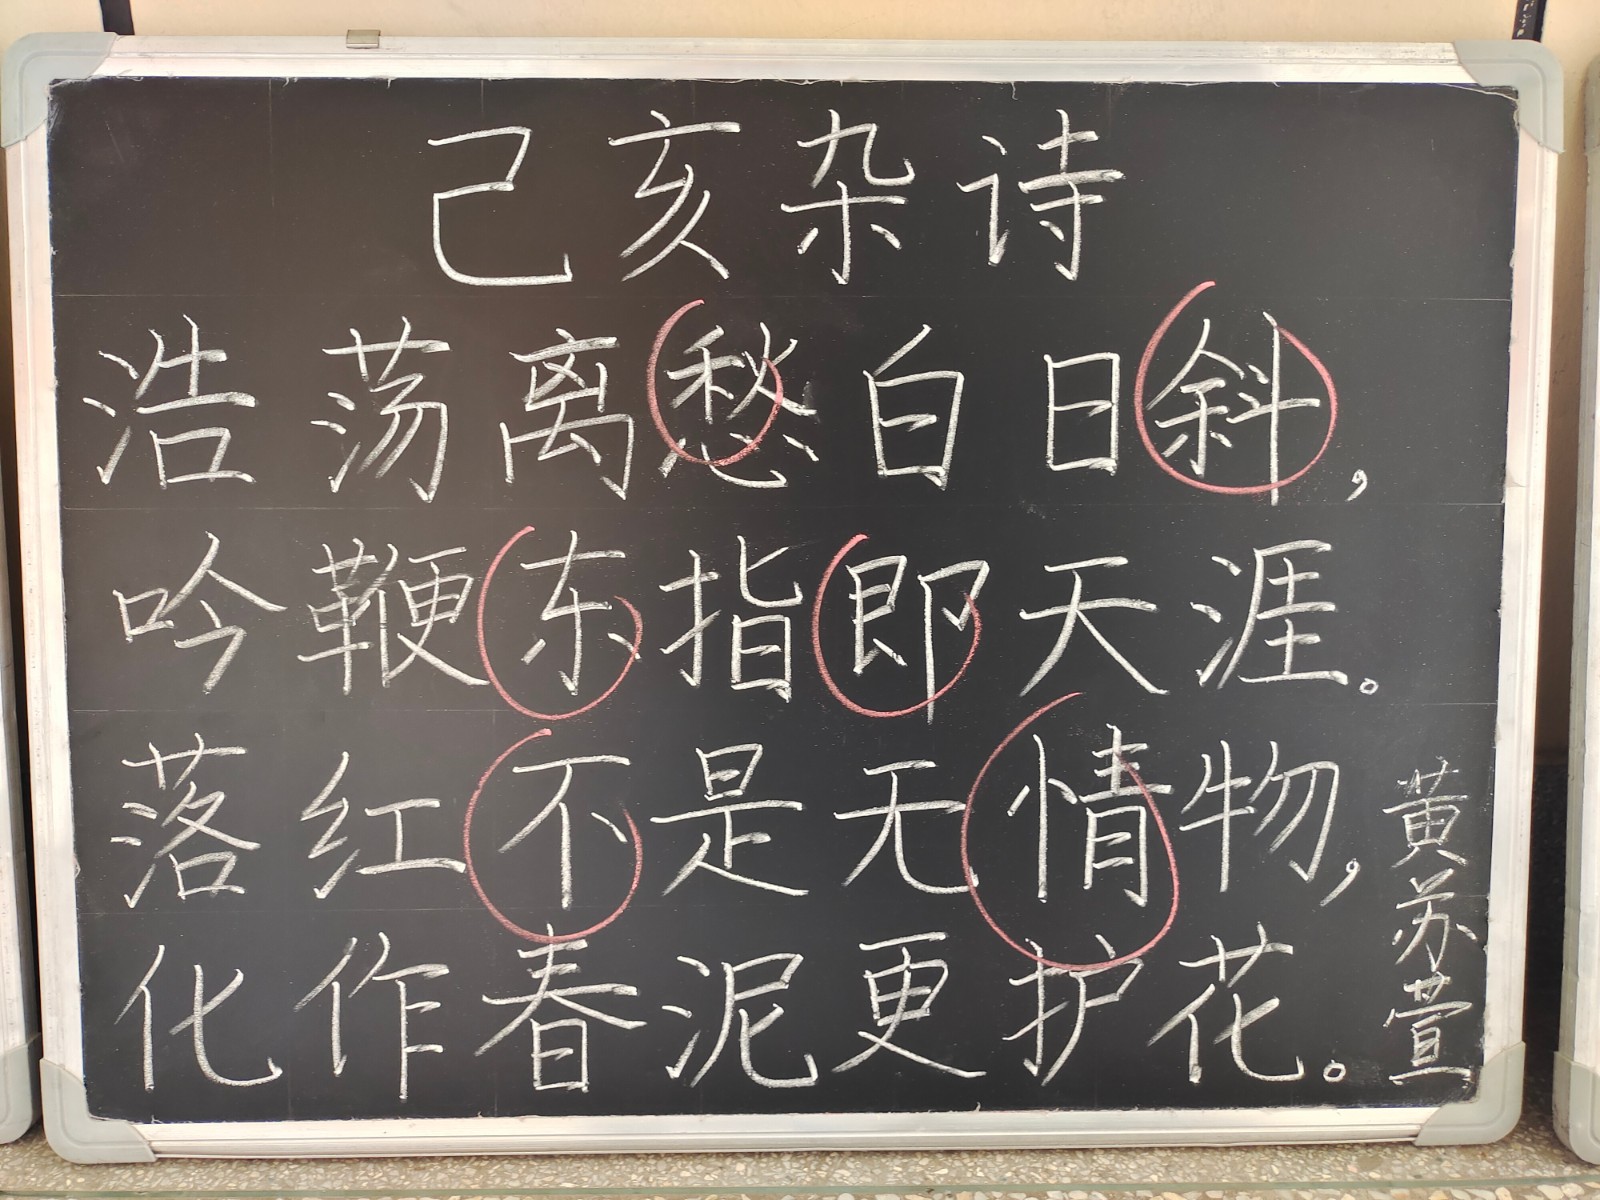 己亥杂诗
浩荡离愁白日斜，
吟鞭东指即天涯。
落红不是无情物，
化作春泥更护花。
黄苏萱